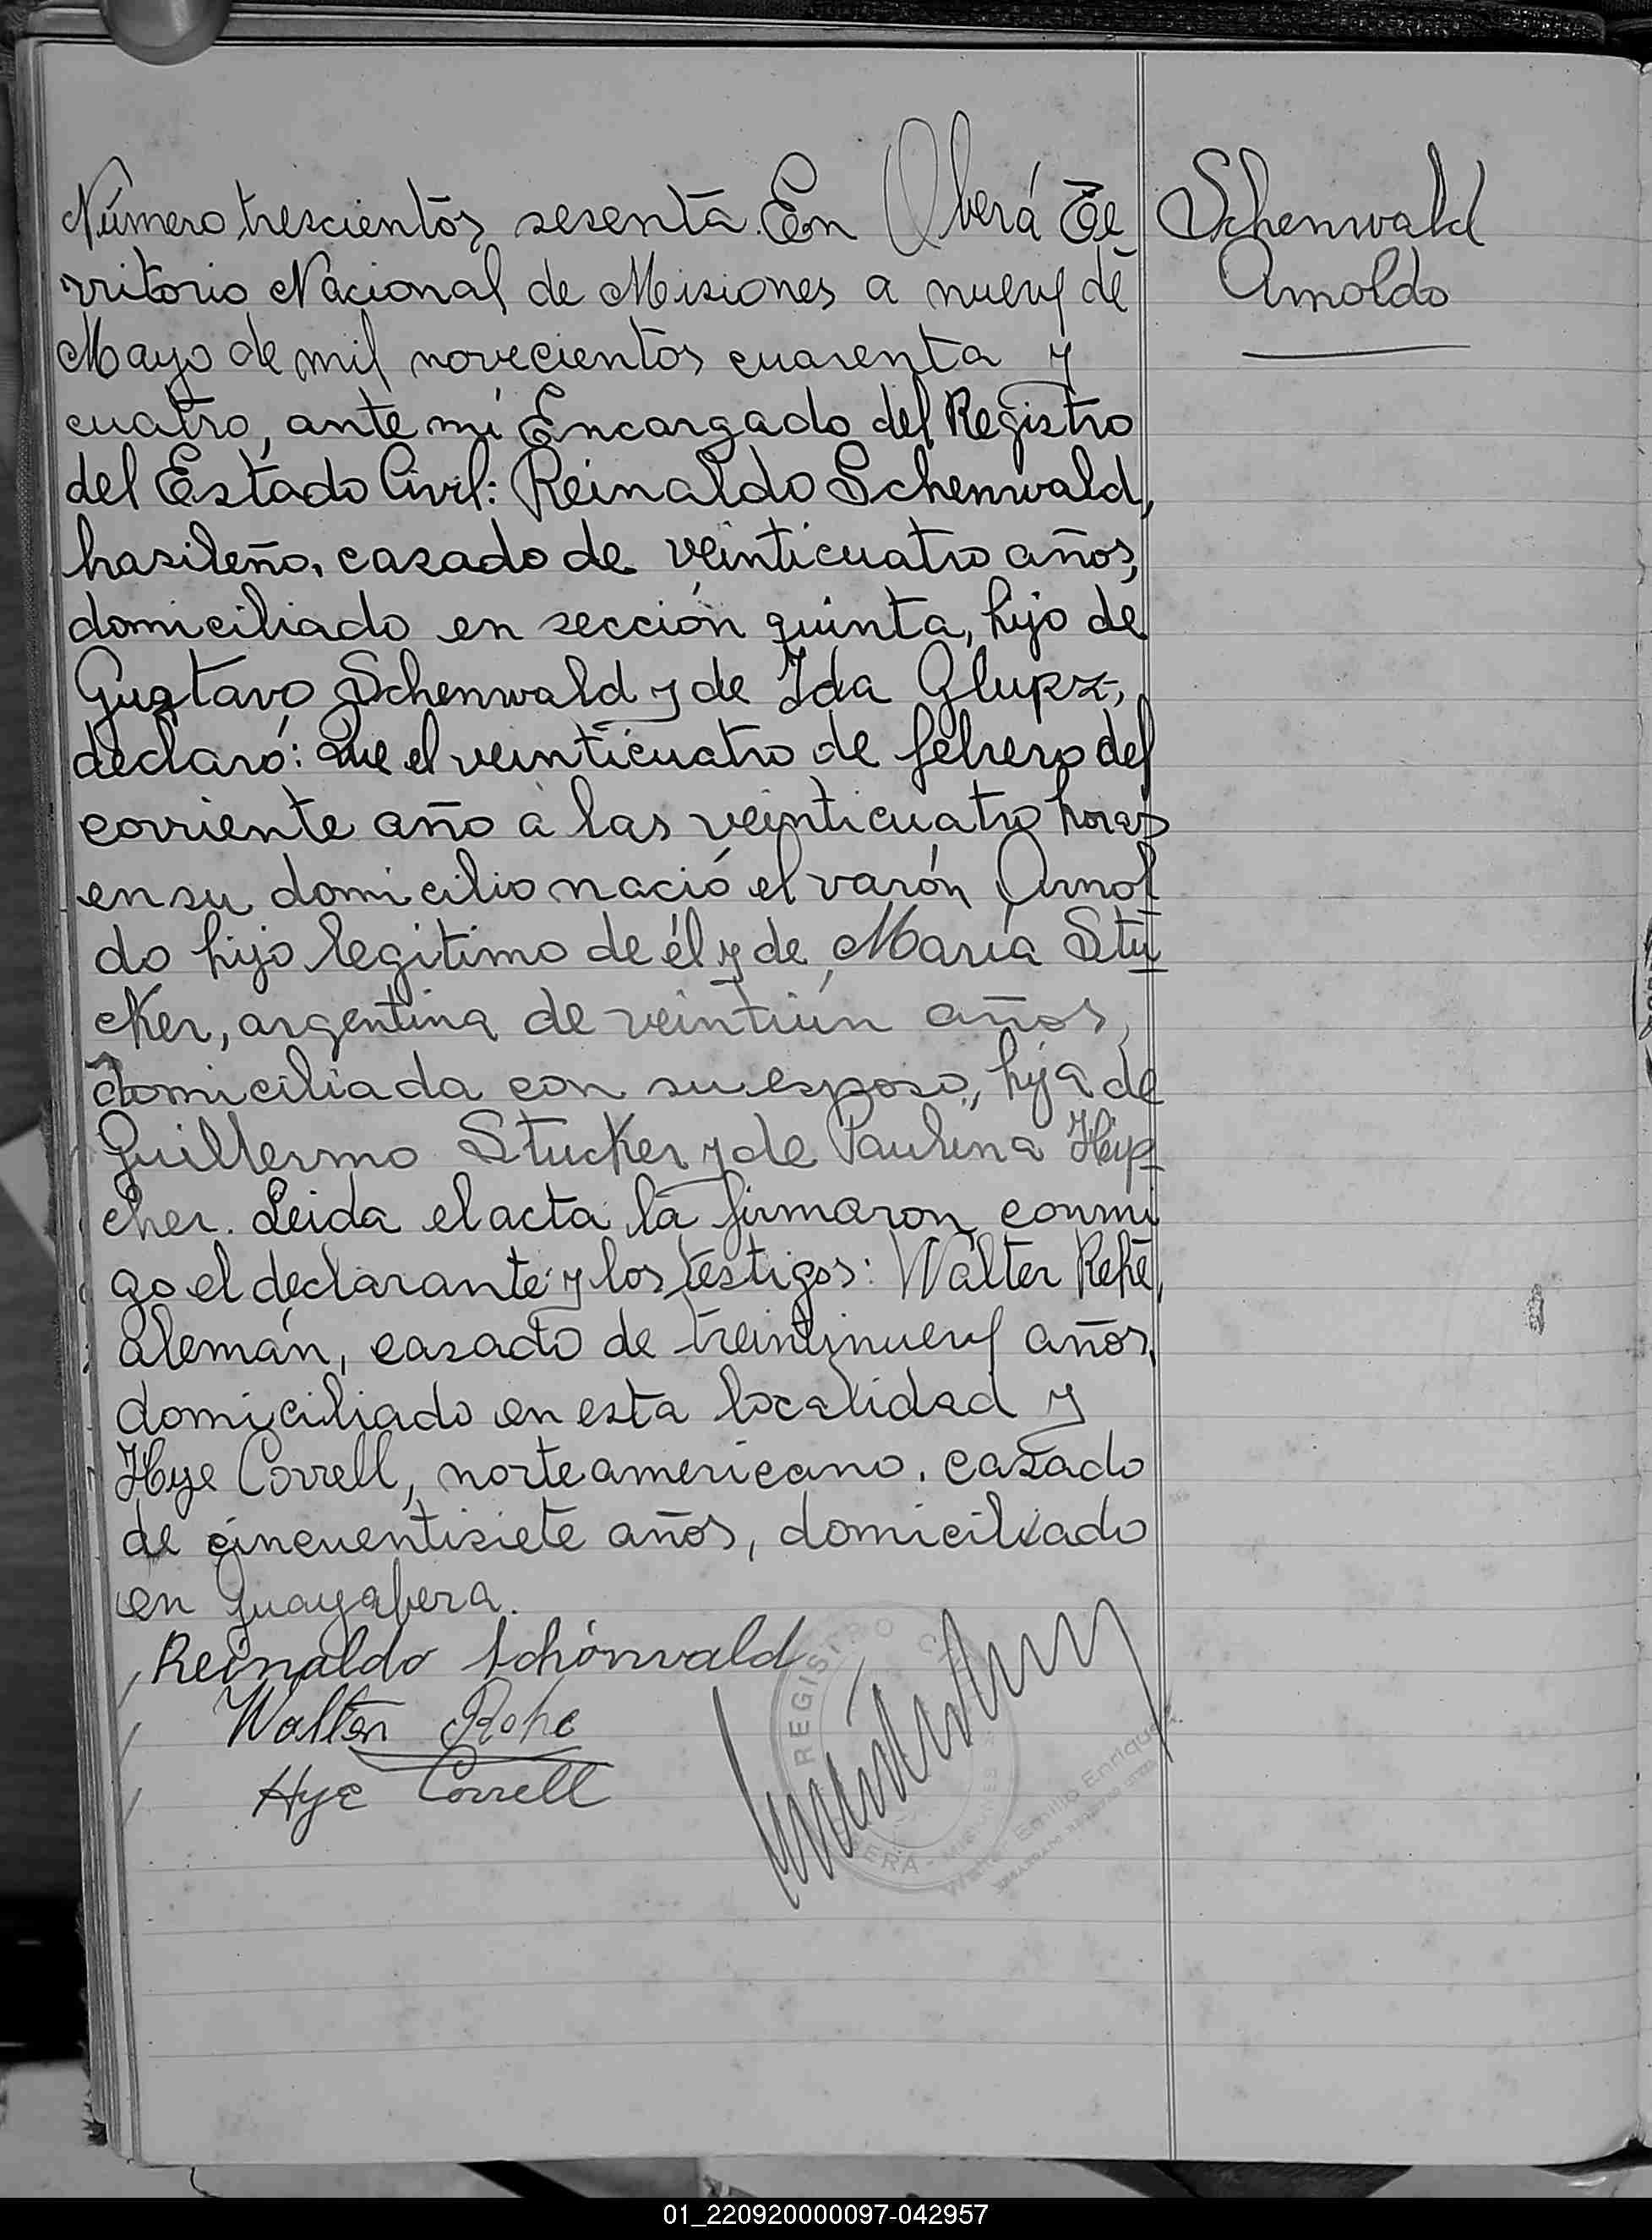 Número trescientos sesenta. En Oberá Te-
rritorio Nacional de Misiones a nueve de
Mayo de mil novecientos cuarenta y
cuatro, ante mí Encargado del Registro
del Estado Civil: Reinaldo Schenwald,
brasileño, casado de veinticuatro años,
domiciliado en sección quinta, hijo de
Gustavo Schenwald y de Ida Glupz,
declaró: Que el veinticuatro de febrero del
corriente año a las veinticuatro horas
en su domicilio nació el varón Arnol
do hijo legitimo de él y de María Stu-
cker, argentina de veintiún años,
domiciliada con su esposo, hija de
Guillermo Stucker y de Paulina
cher. Leida el acta la firmaron conmi
go el declarante y los testigos: Walter Rehe,
alemán, casado de treintinueve años,
domiciliado en esta localidad y
Hye Correll, norteamericano, casado
de cincuentisiete años, domiciliado
en Guayabera.
Reinaldo Schönwald
Walter Rohe
Hye Correll
Schenwald
Arnoldo
REGISTRO
OBERÁ - MISIONES
Emilio Enrique
01_220920000097-042957